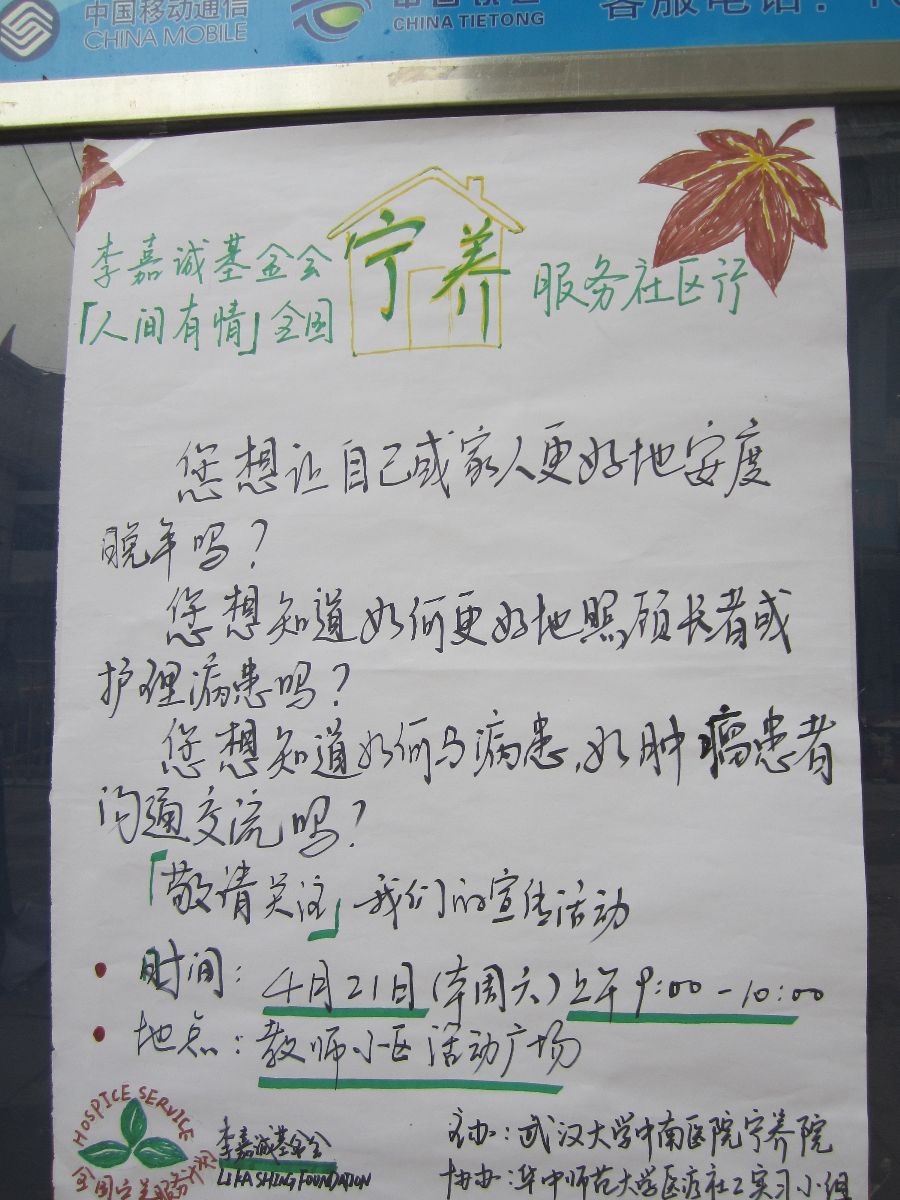 中国移动通信
CHINA MOBILE
CHINA TIETONG
客服电话：10
李嘉诚基金会
「人间有情」全国
宁养
服务社区行
您想让自己或家人更好地安度
晚年吗？
您想知道如何更好地照顾长者或
护理病患吗？
您想知道如何与病患，如肿瘤患者
沟通交流吗？
「敬请关注」我们的宣传活动
• 时间：4月21日（本周六）上午9:00-10:00
• 地点：教师小区活动广场
HOSPICE SERVICE
全国宁养服务计划
李嘉诚基金会
LI KA SHING FOUNDATION
主办：武汉大学中南医院宁养院
协办：华中师范大学医疗社工实习小组